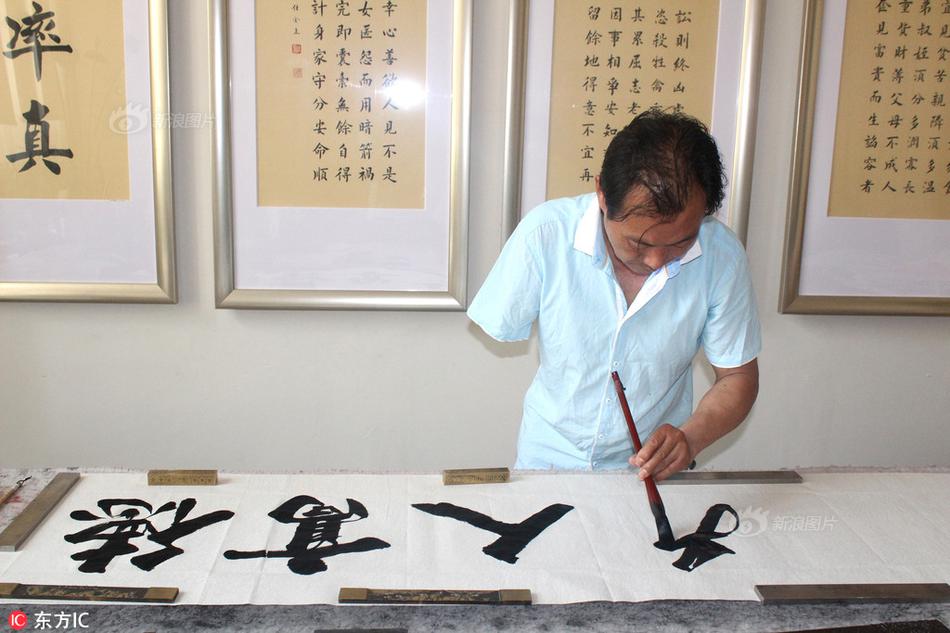 率真
幸心善欲人見不是
女匿怨而用暗箭禍
完即囊橐無餘自得
計身家守分安命順
訟則終凶處
恣殺牲禽
其累屈志老
因事相爭安知
留餘地得意不宜再
見貧苦親隣須多温
弟叔姪須分多潤寡長
重貲財薄父母不成人
奩見富貴而生諂容者
德高人
新浪图片
新浪图片
IC 东方IC